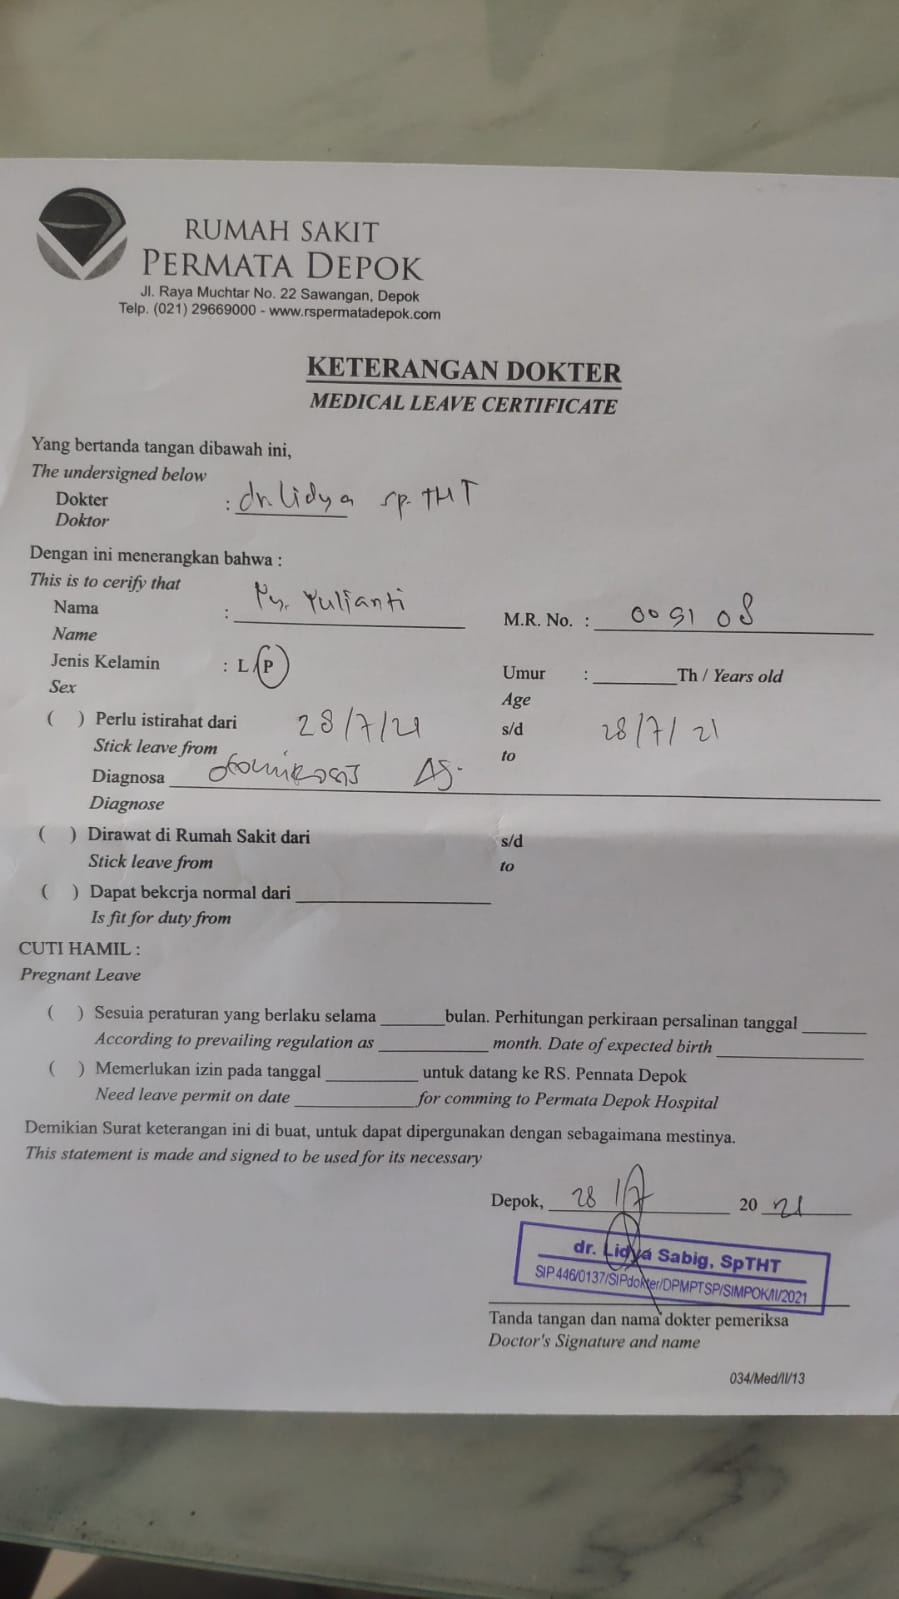 RUMAH SAKIT
PERMATA DEPOK
Jl. Raya Muchtar No. 22 Sawangan, Depok
Telp. (021) 29669000 - www.rspermatadepok.com
KETERANGAN DOKTER
MEDICAL LEAVE CERTIFICATE
Yang bertanda tangan dibawah ini,
The undersigned below
Dokter : dr. Lidya Sp. THT
Doktor
Dengan ini menerangkan bahwa :
This is to cerify that
Nama : Ny. Yulianti M.R. No. : 009108
Name
Jenis Kelamin : L / P Umur : ________ Th / Years old
Sex Age
( ) Perlu istirahat dari 28/7/21 s/d 28/7/21
Stick leave from to
Diagnosa otomikosis
Diagnose
( ) Dirawat di Rumah Sakit dari s/d
Stick leave from to
( ) Dapat bekcrja normal dari ________
Is fit for duty from
CUTI HAMIL :
Pregnant Leave
( ) Sesuia peraturan yang berlaku selama ________ bulan. Perhitungan perkiraan persalinan tanggal ________
According to prevailing regulation as ________ month. Date of expected birth ________
( ) Memerlukan izin pada tanggal ________ untuk datang ke RS. Pennata Depok
Need leave permit on date ________ for comming to Permata Depok Hospital
Demikian Surat keterangan ini di buat, untuk dapat dipergunakan dengan sebagaimana mestinya.
This statement is made and signed to be used for its necessary
Depok, 28/7 20 21
dr. Lidya Sabig, SpTHT
SIP.446/0137/SIPdokter/DPMPTSP/SIMPOK/II/2021
Tanda tangan dan nama dokter pemeriksa
Doctor's Signature and name
034/Med/II/13